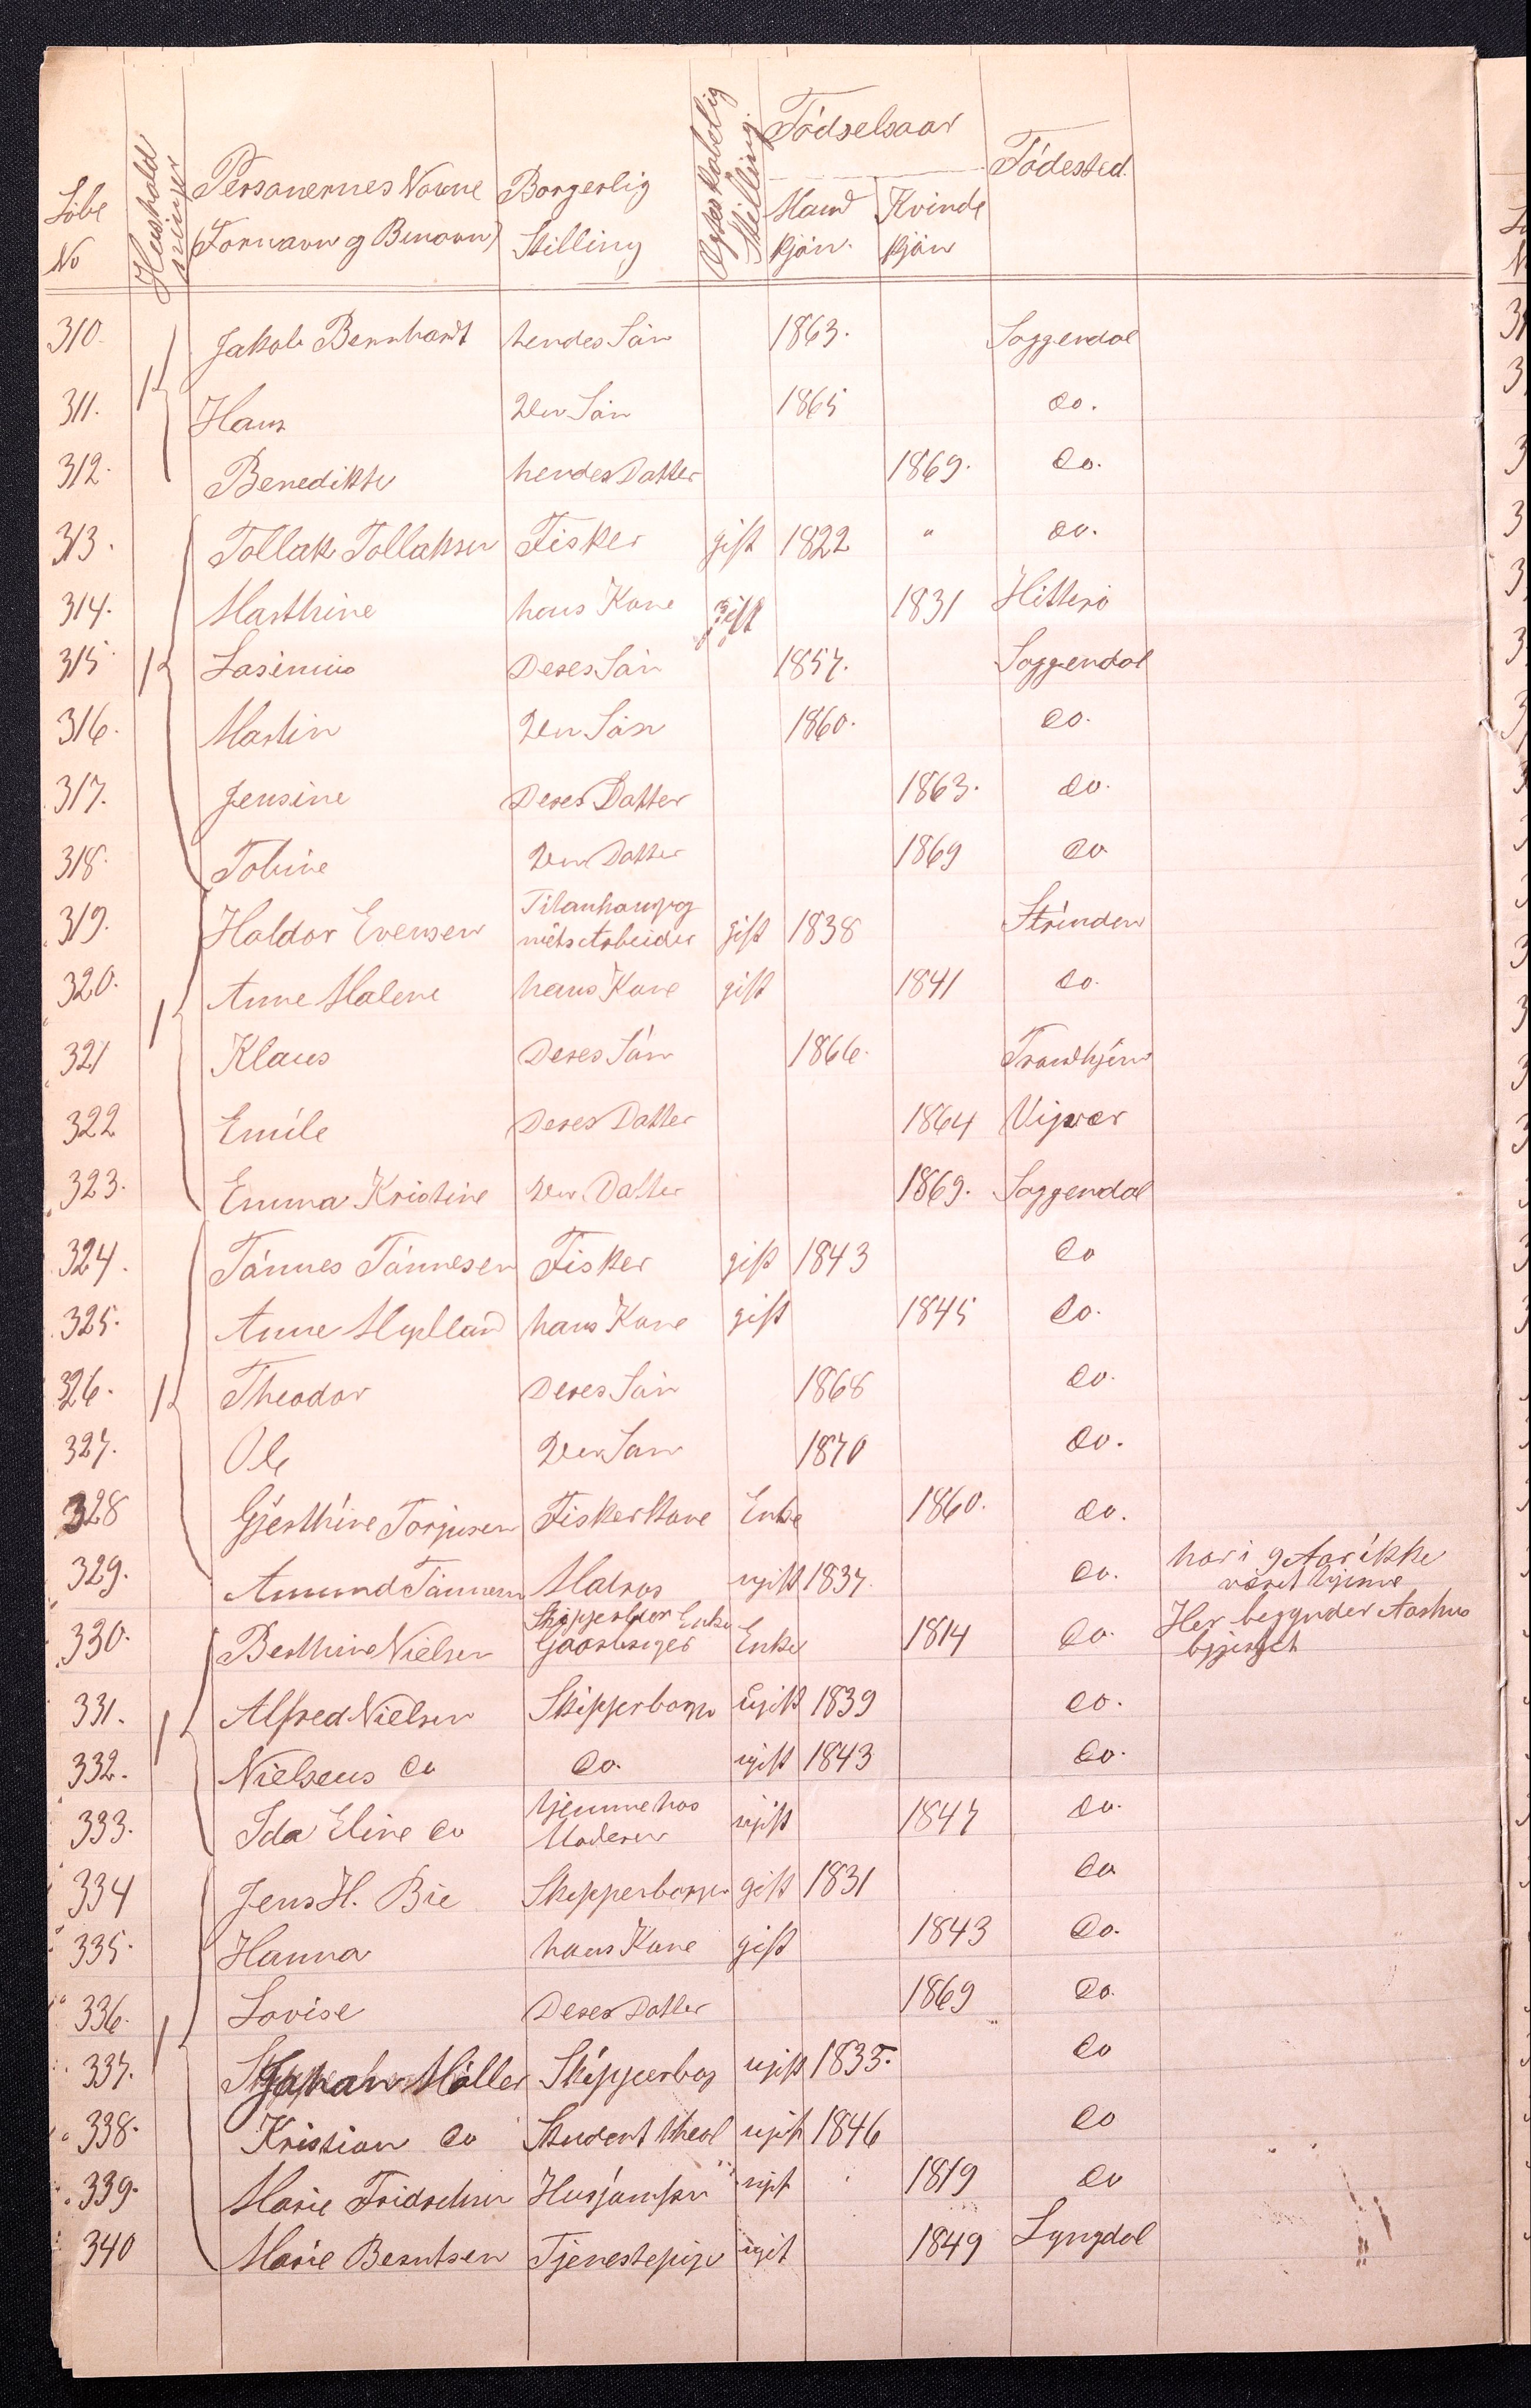 Løbe No | Husholdninger | Personernes Navne (Fornavn og Binavn) | Borgerlig Stilling | Ægteskabelig Stilling | Fødselsaar Mand kjøn. | Kvinde kjøn | Fødested.
310. 1 Jakob Bernhard hendes Søn 1863. Soggendal
311. Hans Den Søn 1865 do.
312. Benedikte hendes Datter 1869. do.
313. Tollak Tollaksen Fisker gift 1822 " do.
314. Marthine hans Kone gift 1831 Hitterø
315 1 Lasinius Deres Søn 1857. Soggendal
316. Martin Den Søn 1860. do.
317. Jensine Deres Datter 1863. do.
318. Tobine Den Datter 1869 do
319. Haldor Evensen gift 1838 Strinden
320. 1 Anne Malene hans Kone gift 1841 do.
321 Klaus Deres Søn 1866. Trondhjem
322 Emile Deres Datter 1864
323. Emma Kristine Den Datter 1869. Soggendal
324. Tønnes Tønnesen Fisker gift 1843 do
325. Anne hans Kone gift 1845 do.
326. 1 Theodor Deres Søn 1868 do.
327. Ole Den Søn 1870 do.
328 Gjerthine Torjusen Fiskerkone Enke 1860. do.
329. Amund Tønnesen Matros ugift 1837. do. har i 9 Aar ikke været hjemme
330. Berthine Nielsen Enke 1814 do. Her begynder Aashus
331. 1 Alfred Nielsen Skipperborger ugift 1839 do.
332. Nielseus do do. ugift 1843 do.
333. Ida Eline do hjemme hos Moderen ugift 1847 do.
334 Jens H. Bie Skipperborger gift 1831 do
335. Hanna hans Kone gift 1843 do.
336. 1 Lovise Deres Datter 1869 do.
337. Johan Møller Skipperbog ugift 1835. do
338. Kristian do Student theol ugift 1846 do
339. Marie Husjomfru ugift 1819 do
340 Marie Berntsen Tjenestepige ugit 1849 Lyngdal